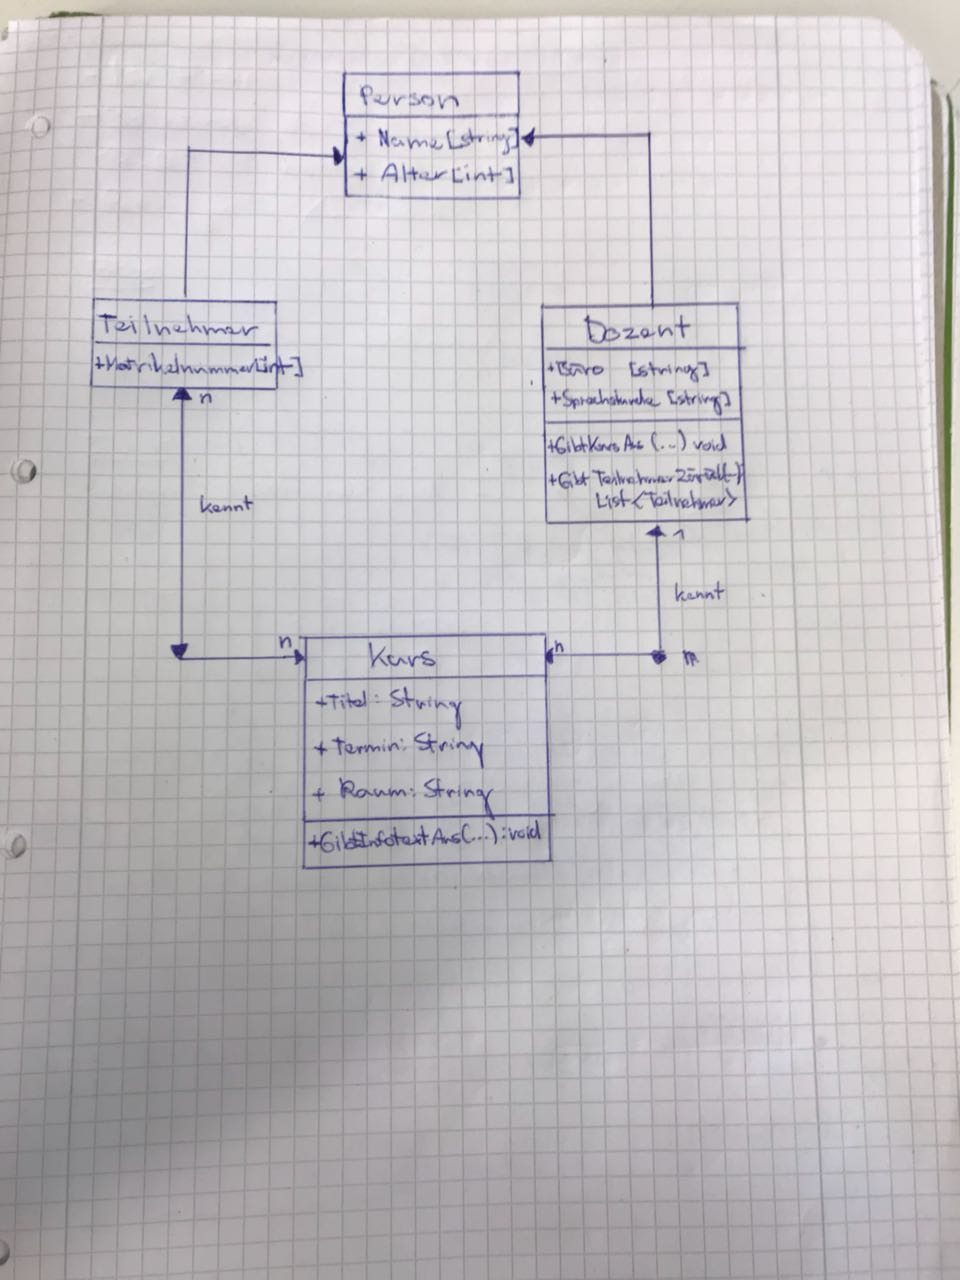 Person
+ Name [string]
+ Alter [int]
Teilnehmer
+Matrikelnummer[int]
n
kennt
Dozent
+Büro [string]
+Sprechstunde [string]
+GibtKursAus (...) void
+Gibt Teilnehmer Zurück
List<Teilnehmer>
1
kennt
n
n
Kurs
+Titel: String
+ Termin: String
+ Raum: String
+GibtInfotextAus(...): void